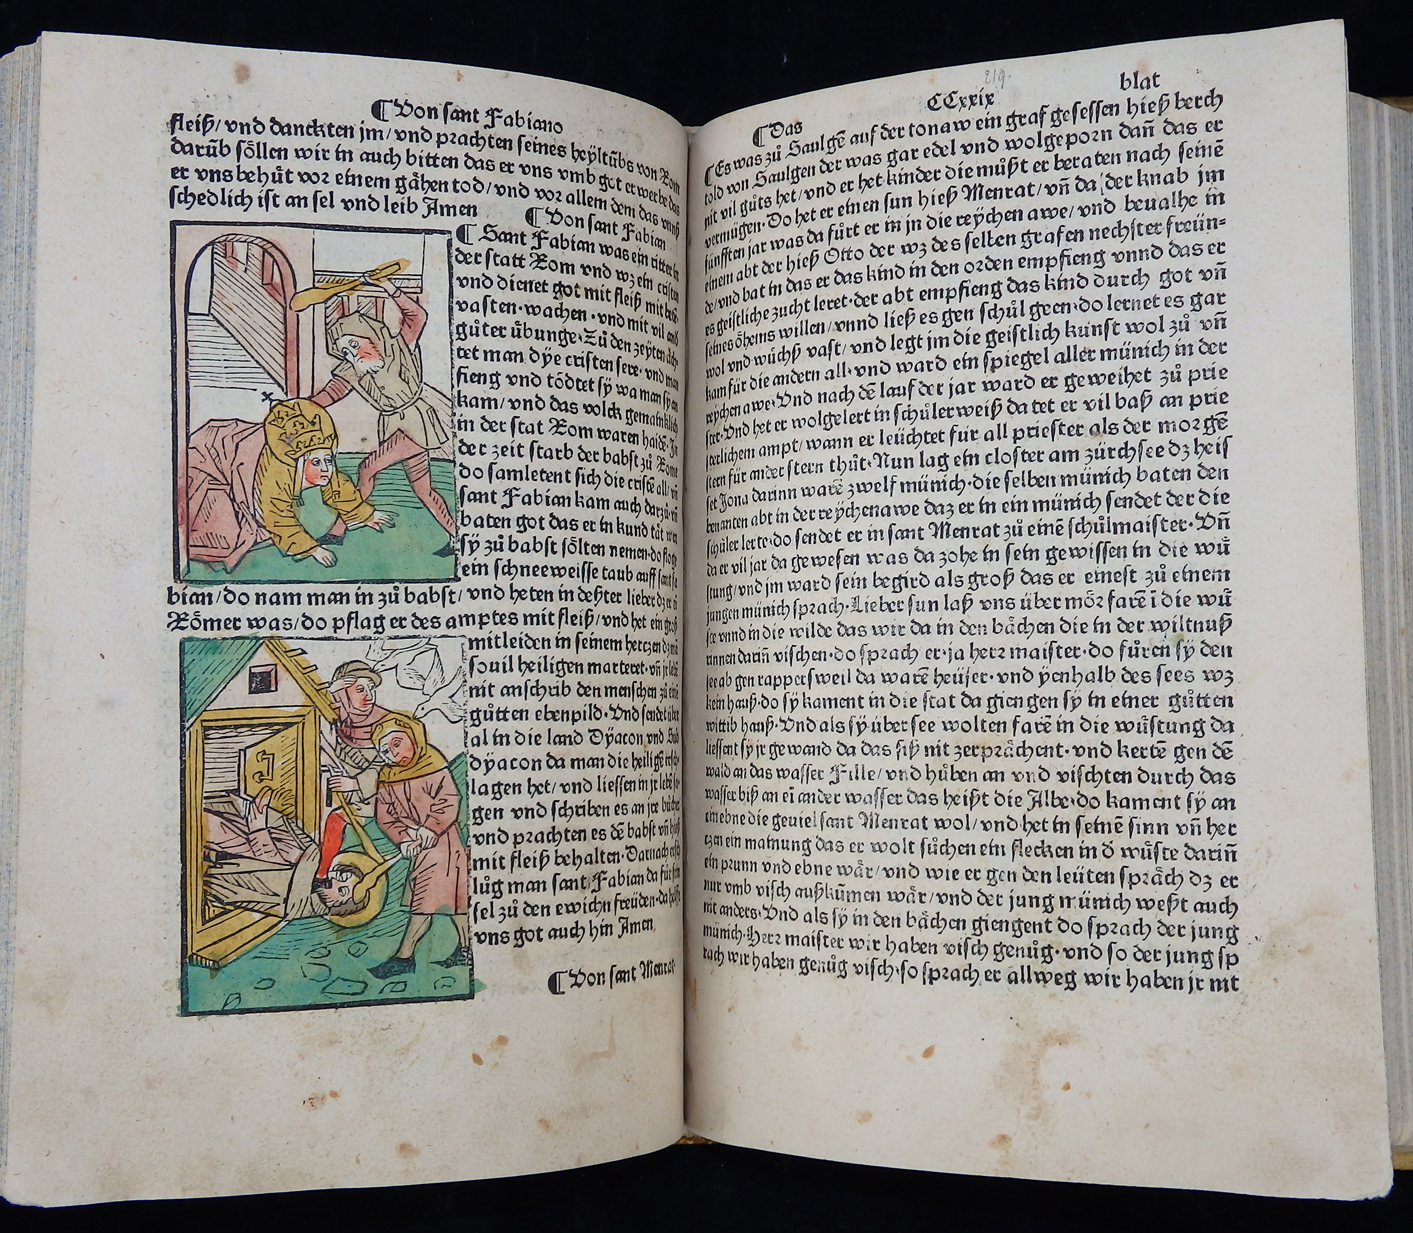 ¶Von sant Fabiano
fleiß/vnd danckten jm/vnd prachten seines heÿltũbs von Rom
darũb sŏllen wir in auch bitten das er vns vmb got erwerbe das
er vns behůt vor einem gåhen tod/vnd vor allem dem das vnnß
schedlich ist an sel vnd leib Amen
¶Von sant Fabian
¶Sant Fabian was ein ritter in
der statt Rom vnd wz ein cristen
vnd dienet got mit fleiß mit
vasten·wachen·vnd mit vil
gůter ůbunge·Zů den zeÿten
tet man dÿe cristen sere·vnd man
fieng vnd tŏdtet sÿ wa man sÿ an
kam/vnd das volck gemainklich
in der stat Rom waren haidẽ·In
der zeit starb der babst zů Rome
do samletent sich die cristẽ all/vñ
sant Fabian kam auch darzů·vñ
baten got das er in kund tåt wen
sÿ zů babst sŏlten nemen·do flog
ein schneeweisse taub auff sant
bian/do nam man in zů babst/vnd heten in dester lieber dz er
Rŏmer was/do pflag er des amptes mit fleiß/vnd het ein groß
mitleiden in seinem hertzen dz mã
souil heiligen marteret·vñ jr lebẽ
nit anschrib den menschen zů eim
gůtten ebenpild·Vnd sendet über
al in die land Dÿacon vnd Sub
dÿacon da man die heiligẽ ersch
lagen het/vnd liessen in jr lebẽ
gen vnd schriben es an jre bůcher
vnd prachten es dẽ babst vñ hieß
mit fleiß behalten·Darnach ersch
lůg man sant Fabian da fůr sein
sel zů den ewichn freüden·da helff
vns got auch hin Amen
¶Von sant Menrat
219
¶Das CCxxix blat
¶Es was zů Saulgẽ auf der tonaw ein graf gesessen hieß berch
told von Saulgen der was gar edel vnd wolgeporn dañ das er
nit vil gůts het/vnd er het kinder die můßt er beraten nach seinẽ
vermügen·Do het er einen sun hieß Menrat/vñ da der knab jm
fünfften jar was da fůrt er in jn die reÿchen awe/vnd beualhe in
einem abt der hieß Otto der wz des selben grafen nechster freün⸗
de/vnd bat in das er das kind in den orden empfieng vnnd das er
es geistliche zucht leret·der abt empfieng das kind durch got vñ
seines ŏheins willen/vnnd ließ es gen schůl geen·do lernet es gar
wol vnd wůchß vast/vnd legt jm die geistlich kunst wol zů vñ
kam für die andern all·vnd ward ein spiegel aller münich in der
reÿchen awe·Vnd nach dẽ lauf der jar ward er geweihet zů prie
ster·Vnd het er wolgelert in schůler weiß da tet er vil baß an prie
sterlichem ampt/wann er leüchtet für all priester als der morgẽ
stern für ander stern thůt·Nun lag ein closter am zürchsee dz heis
set Jona darinn warẽ zwelf münich·die selben münich baten den
benanten abt in der reÿchenawe daz er in ein münich sendet der die
schůler lerte·do sendet er in sant Menrat zů einẽ schůlmaister·Vñ
da er vil jar da gewesen was da zohe in sein gewissen in die wů
stung/vnd jm ward sein begird als groß das er einest zů einem
jungen münich sprach·Lieber sun laß vns über mŏr farẽ ĩ die wů
ste vnnd in die wilde das wir da in den båchen die in der wiltnuß
rinnen dariñ vischen·do sprach er·ja herr maister·do fůren sÿ den
see ab gen rappersweil da warẽ heüser·vnd ÿenhalb des sees wz
kein hauß·do sÿ kament in die stat da giengen sÿ in einer gůtten
wittib hauß·Vnd als sÿ über see wolten farẽ in die wůstung da
liessent sÿ jr gewand da das sÿß nit zerpråchent·vnd kertẽ gen dẽ
wald an das wasser Fille/vnd hůben an vnd vischten durch das
wasser biß an ei ander wasser das heißt die Albe·do kament sÿ an
ein ebne die geuiel sant Menrat wol/vnd het in seinẽ sinn vñ her
tzen ein mainung das er wolt sůchen ein flecken in d wůste dariñ
ein prunn vnd ebne wår/vnd wie er gen den leüten språch dz er
nur vmb visch außkũmen wår/vnd der jung münich weßt auch
nit anders·Vnd als sÿ in den båchen giengent do sprach der jung
münich·Herr maister wir haben visch genůg·vnd so der jung sp
rach wir haben genůg visch·so sprach er allweg wir haben jr nit